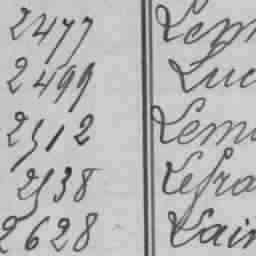 2477 Lem
2499 Luc
2512 Lema
2538 Lefra
2628 Lain